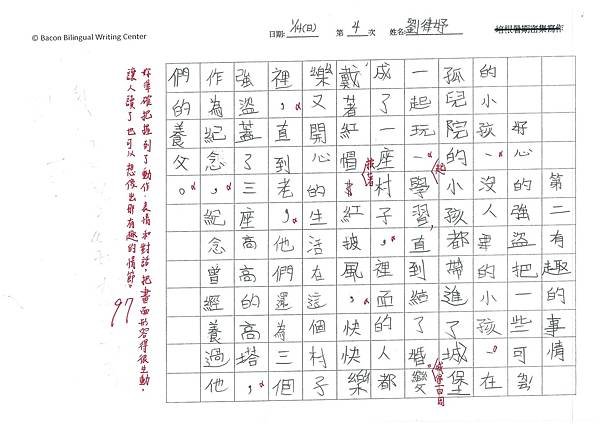 © Bacon Bilingual Writing Center
日期: 1/14(日) 第 4 次 姓名: 劉律妤
培根暑期密集寫作
第二有趣的事情
好心的強盜把一些可
的小孩、沒人的小孩、在
孤兒院的小孩都帶進了城堡
一起玩、學習,直到結了婚變
成了一座村子,裡面的人都
戴著紅帽、紅披風,快快樂
樂又開心的生活在這個村子
裡,直到老,他們還為三個
強盜蓋了三座高高的高塔,
作為紀念,紀念曾經養過他
們的養父。
你準確把握到了動作、表情和對話,把畫面形容得很生動,
讓人讀了也可以想像出那有趣的情節。
97